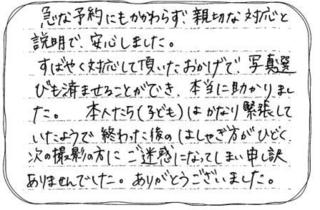 急な予約にもかかわらず 親切な対応と
説明で、安心しました。
すばやく対応して頂いたおかげで、写真選
びも済ませることができ、本当に助かりまし
た。 本人たち(子ども)はかなり緊張して
いたようで 終わった後の はしゃぎ方がひどく、
次の撮影の方に ご迷惑になってしまい申し訳
ありませんでした。ありがとうございました。